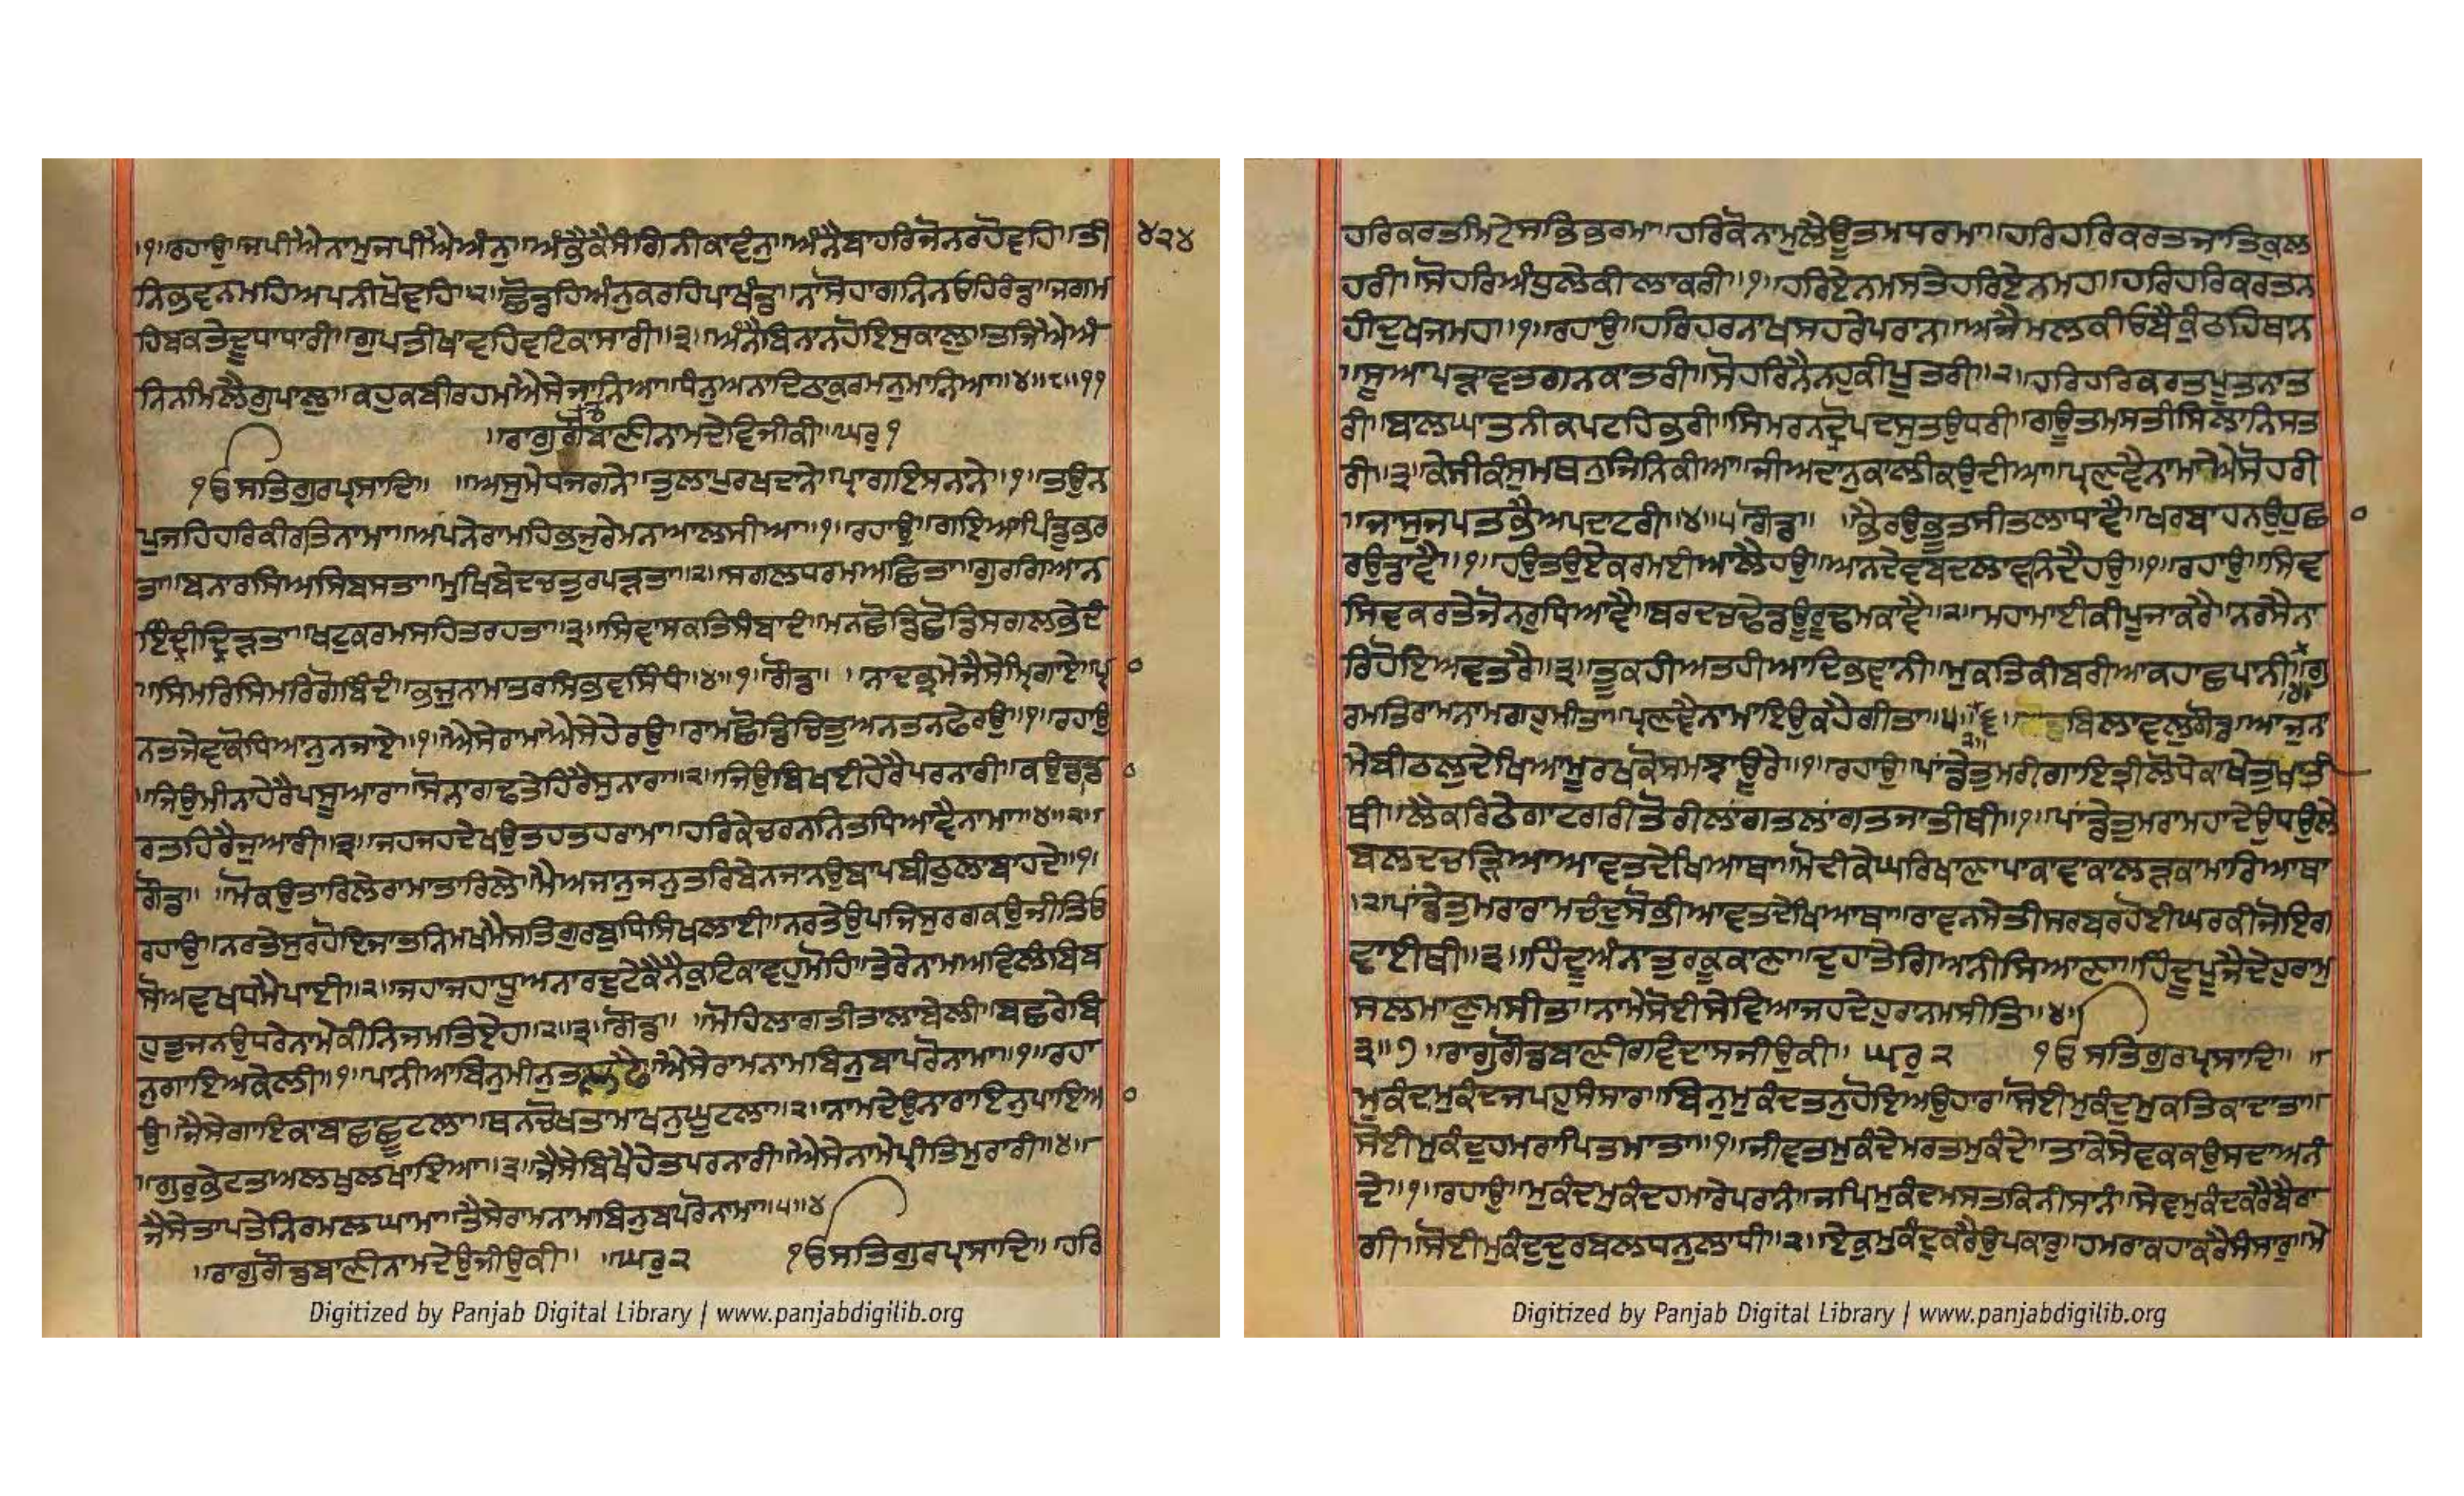 ।੧।ਰਹਾਉ।।ਜਪੀਐਨਾਮੁਜਪੀਐਅੰਨੁ।।ਅੰਭੈਕੈਸੰਗਿਨੀਕਾਵੰਨੁ।।ਅੰਨੈਬਾਹਰਿਜੋਨਰਹੋਵਹਿ।।ਤੀ ੪੨੪
ਨਿਭਵਨਮਹਿਅਪਨੀਖੋਵਹਿ।੨।ਛੋਡਹਿਅੰਨੁਕਰਹਿਪਾਖੰਡ।।ਨਾਸੋਹਾਗਨਿਨਓਹਿਰੰਡ।।ਜਗਮ
ਹਿਬਕਤੇਦੂਧਾਧਾਰੀ।।ਗੁਪਤੀਖਾਵਹਿਵਟਿਕਾਸਾਰੀ।।੩।।ਅੰਨੈਬਿਨਾਨਹੋਇਸੁਕਾਲੁ।।ਤਜਿਐਅੰ
ਨਿਨਮਿਲੈਗੁਪਾਲੁ।।ਕਹੁਕਬੀਰਹਮਐਸੇਜਾਨਿਆ।।ਧੰਨੁਅਨਾਦਿਠਾਕੁਰਮਨੁਮਾਨਿਆ।।੪।।੮।।੧੧
।।ਰਾਗੁਗੋਂਡਬਾਣੀਨਾਮਦੇਵਿਜੀਕੀ।।ਘਰੁ੧
੧ਓਸਤਿਗੁਰਪ੍ਰਸਾਦਿ।। ।।ਅਸੁਮੇਧਜਗਨੇ।।ਤੁਲਾਪੁਰਖਦਾਨੇ।।ਪ੍ਰਾਗਇਸਨਾਨੇ।।੧।।ਤਉਨ
ਪੁਜਹਿਹਰਿਕੀਰਤਿਨਾਮਾ।।ਅਪਨੇਰਾਮਹਿਭਜੁਰੇਮਨਆਲਸੀਆ।।੧।।ਰਹਾਉ।।ਗਇਆਪਿੰਡੁਭਰ
ਤਾ।।ਬਨਾਰਸਿਅਸਿਬਸਤਾ।।ਮੁਖਿਬੇਦਚਤੁਰਪੜਤਾ।।੨।।ਸਗਲਧਰਮਅਛਿਤਾ।।ਗੁਰਗਿਆਨ
ਇੰਦ੍ਰੀਦ੍ਰਿੜਤਾ।।ਖਟੁਕਰਮਸਹਿਤਰਹਤਾ।।੩।।ਸਿਵਾਸਕਤਿਸੰਬਾਦੰ।।ਮਨਛੋਡਿਛੋਡਿਸਗਲਭੇਦੰ
।।ਸਿਮਰਿਸਿਮਰਿਗੋਬਿੰਦੰ।।ਭਜੁਨਾਮਾਤਰਸਿਭਵਸਿੰਧੰ।।੪।।੧।।ਗੋਂਡ।। ।ਨਾਦਭ੍ਰਮੇਜੈਸੇਮਿਰਗਾਏ।।ਪ੍ਰਾ ੦
ਨਤਜੇਵਾਕੋਧਿਆਨੁਨਜਾਏ।।੧।।ਐਸੇਰਾਮਾਐਸੇਹੇਰਉ।।ਰਾਮਛੋਡਿਚਿਤੁਅਨਤਨਫੇਰਉ।।੧।।ਰਹਾਉ
।।ਜਿਉਮੀਨਾਹੇਰੈਪਸੂਆਰਾ।।ਸੋਨਾਗਢਤੇਹਿਰੈਸੁਨਾਰਾ।।੨।।ਜਿਉਬਿਖਈਹੇਰੈਪਰਨਾਰੀ।।ਕਉਡਾਡਾ ੦
ਰਤਹਿਰੈਜੁਆਰੀ।।੩।।ਜਹਜਹਦੇਖਉਤਹਤਹਰਾਮਾ।।ਹਰਿਕੇਚਰਨਨਿਤਧਿਆਵੈਨਾਮਾ।।੪।।੨।।
ਗੋਂਡ।। ।।ਮੋਕਉਤਾਰਿਲੇਰਾਮਾਤਾਰਿਲੇ।।ਮੈਅਜਾਨੁਜਨੁਤਰਿਬੇਨਜਾਨਉਬਾਪਬੀਠੁਲਾਬਾਹਦੇ।।੧।
ਰਹਾਉ।।ਨਰਤੇਸੁਰਹੋਇਜਾਤਨਿਮਖਮੈਸਤਿਗੁਰਬੁਧਿਸਿਖਲਾਈ।।ਨਰਤੇਉਪਜਿਸੁਰਗਕਉਜੀਤਿਓ
ਸੋਅਵਖਧਮੈਪਾਈ।।੨।।ਜਹਾਜਹਾਧੂਅਨਾਰਦੁਟੇਕੈਨੈਕੁਟਿਕਾਵਹੁਮੋਹਿ।।ਤੇਰੇਨਾਮਅਵਿਲੰਬਿਬ
ਹੁਤੁਜਨਉਧਰੇਨਾਮੇਕੀਨਿਜਮਤਿਏਹਾ।।੨।।੩।।ਗੋਂਡ।। ।।ਮੋਹਿਲਾਗਤੀਤਾਲਾਬੇਲੀ।।ਬਛਰੇਬਿ
ਨੁਗਾਇਅਕੇਲੀ।।੧।।ਪਾਨੀਆਬਿਨੁਮੀਨੁਤਲਫੈ।।ਐਸੇਰਾਮਨਾਮਾਬਿਨੁਬਾਪਰੋਨਾਮਾ।।੧।।ਰਹਾ
ਉ।।ਜੈਸੇਗਾਇਕਾਬਾਛਛੂਟਲਾ।।ਥਨਚੋਖਤਾਮਾਖਨੁਘੁਟਲਾ।।੨।।ਨਾਮਦੇਉਨਾਰਾਇਨੁਪਾਇਆ ੦
।।ਗੁਰੁਭੇਟਤਅਲਖੁਲਖਾਇਆ।।੩।।ਜੈਸੇਬਿਖੈਹੇਤਪਰਨਾਰੀ।।ਐਸੇਨਾਮੇਪ੍ਰੀਤਿਮੁਰਾਰੀ।।੪।।
ਜੈਸੇਤਾਪਤੇਨਿਰਮਲਘਾਮਾ।।ਤੈਸੇਰਾਮਨਾਮਾਬਿਨੁਬਾਪਰੋਨਾਮਾ।।੫।।੪
।।ਰਾਗੁਗੋਂਡਬਾਣੀਨਾਮਦੇਉਜੀਉਕੀ।। ।।ਘਰੁ੨ ੧ਓਸਤਿਗੁਰਪ੍ਰਸਾਦਿ।।ਹਰਿ
Digitized by Panjab Digital Library | www.panjabdigilib.org
ਹਰਿਕਰਤਮਿਟੇਸਭਿਭਰਮਾ।।ਹਰਿਕੋਨਾਮੁਲੈਊਤਮਧਰਮਾ।।ਹਰਿਹਰਿਕਰਤਜਾਤਿਕੁਲ
ਹਰੀ।।ਸੋਹਰਿਅੰਧੁਲੇਕੀਲਾਕਰੀ।।੧।।ਹਰਿਏਨਮਸਤੇਹਰਿਏਨਮਹ।।ਹਰਿਹਰਿਕਰਤਨ
ਹੀਦੁਖਜਮਹ।।੧।।ਰਹਾਉ।।ਹਰਿਹਰਨਾਖਸਹਰੇਪਰਾਨ।।ਅਜੈਮਲਕੀਓਬੈਕੁੰਠਹਿਥਾਨ
।।ਸੂਆਪੜਾਵਤਗਨਕਾਤਰੀ।।ਸੋਹਰਿਨੈਨਹੁਕੀਪੂਤਰੀ।।੨।।ਹਰਿਹਰਿਕਰਤਪੂਤਨਾਤ
ਰੀ।।ਬਾਲਘਾਤਨੀਕਪਟਹਿਭਰੀ।।ਸਿਮਰਨਦ੍ਰੋਪਦਸੁਤਉਧਰੀ।।ਗਊਤਮਸਤੀਸਿਲਾਨਿਸਤ
ਰੀ।।੩।।ਕੇਸੀਕੰਸੁਮਥਨੁਜਿਨਿਕੀਆ।।ਜੀਅਦਾਨੁਕਾਲੀਕਉਦੀਆ।।ਪ੍ਰਣਵੈਨਾਮਾਐਸੋਹਰੀ
।।ਜਾਸੁਜਪਤਭੈਅਪਦਾਟਰੀ।।੪।।੫।ਗੋਂਡ।। ।ਭੈਰਉਭੂਤਸੀਤਲਾਧਾਵੈ।।ਖਰਬਾਹਨਉਹੁਛਾ ੦
ਰਉਡਾਵੈ।।੧।।ਹਉਤਉਏਕਰਮਈਆਲੈਹਉ।।ਆਨਦੇਵਬਦਲਾਵਨਿਦੈਹਉ।।੧।।ਰਹਾਉ।।ਸਿਵ
ਸਿਵਕਰਤੇਜੋਨਰੁਧਿਆਵੈ।।ਬਰਦਚਢੇਡਉਰੂਢਮਕਾਵੈ।।੨।।ਮਹਾਮਾਈਕੀਪੂਜਾਕਰੈ।।ਨਰਸੈਨਾ
ਰਿਹੋਇਅਵਤਰੈ।।੩।।ਤੂਕਹੀਅਤਹੀਆਦਿਭਵਾਨੀ।।ਮੁਕਤਿਕੀਬਰੀਆਕਹਾਛਪਾਨੀ।।ਗੁ
ਰਮਤਿਰਾਮਨਾਮਗਹੁਮੀਤਾ।।ਪ੍ਰਣਵੈਨਾਮਾਇਉਕਹੈਗੀਤਾ।।੫।।੬।। ਬਿਲਾਵਲੁਗੋਂਡ।।ਆਜੁਨਾ
ਮੇਬੀਠਲੁਦੇਖਿਆਮੂਰਖਕੋਸਮਝਾਊਰੇ।।੧।।ਰਹਾਉ।।ਪਾਂਡੇਤੁਮਰੀਗਾਇਤ੍ਰੀਲੋਧੇਕਾਖੇਤੁਖਾਤੀ
ਥੀ।।ਲੈਕਰਿਠੇਗਾਟਗਰੀਤੋਰੀਲਾਂਗਤਲਾਂਗਤਜਾਤੀਥੀ।।੧।।ਪਾਂਡੇਤੁਮਰਾਮਹਾਦੇਉਧਉਲੇ
ਬਲਦਚੜਿਆਆਵਤਦੇਖਿਆਥਾ।।ਮੋਦੀਕੇਘਰਿਖਾਣਾਪਾਕਾਵਾਕਾਲੜਕਾਮਾਰਿਆਥਾ
।੨।ਪਾਂਡੇਤੁਮਰਾਰਾਮਚੰਦੁਸੋਭੀਆਵਤਦੇਖਿਆਥਾ।।ਰਾਵਨਸੇਤੀਸਰਬਰਹੋਈਘਰਕੀਜੋਇਗ
ਵਾਈਥੀ।।੩।।ਹਿੰਦੂਅੰਨਾਤੁਰਕੂਕਾਣਾ।।ਦੁਹਾਤੇਗਿਆਨੀਸਿਆਣਾ।।ਹਿੰਦੂਪੂਜੈਦੇਹੁਰਾਮੁ
ਸਲਮਾਣੁਮਸੀਤਾ।।ਨਾਮੇਸੋਈਸੇਵਿਆਜਹਦੇਹੁਰਾਨਮਸੀਤਿ।।੪।।
੩।।੭ ।।ਰਾਗੁਗੋਂਡਬਾਣੀਰਵਿਦਾਸਜੀਉਕੀ।। ਘਰੁ੨ ੧ਓਸਤਿਗੁਰਪ੍ਰਸਾਦਿ।। ।।
ਮੁਕੰਦਮੁਕੰਦਜਪਹੁਸੰਸਾਰ।।ਬਿਨੁਮੁਕੰਦਤਨੁਹੋਇਅਉਹਾਰ।।ਸੋਈਮੁਕੰਦੁਮੁਕਤਿਕਾਦਾਤਾ।।
ਸੋਈਮੁਕੰਦੁਹਮਰਾਪਿਤਮਾਤਾ।।੧।।ਜੀਵਤਮੁਕੰਦੇਮਰਤਮੁਕੰਦੇ।।ਤਾਕੇਸੇਵਕਕਉਸਦਾਅਨੰ
ਦੇ।।੧।।ਰਹਾਉ।।ਮੁਕੰਦਮੁਕੰਦਹਮਾਰੇਪਰਾਨੰ।।ਜਪਿਮੁਕੰਦਮਸਤਕਿਨੀਸਾਨੰ।।ਸੇਵਮੁਕੰਦਕਰੈਬੈਰਾ
ਗੀ।।ਸੋਈਮੁਕੰਦੁਦੁਰਬਲਧਨੁਲਾਧੀ।।੨।।ਏਕੁਮੁਕੰਦੁਕਰੈਉਪਕਾਰੁ।।ਹਮਰਾਕਹਾਕਰੈਸੰਸਾਰੁ।।ਮੇ
Digitized by Panjab Digital Library | www.panjabdigilib.org